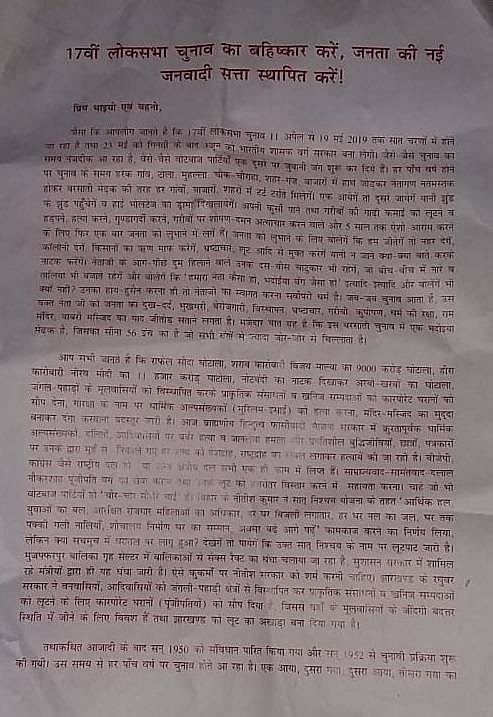 17वीं लोकसभा चुनाव का बहिष्कार करें, जनता की नई
जनवादी सत्ता स्थापित करें!
प्रिय भाइयो एवं बहनो,
जैसा कि आपलोग जानते है कि 17वीं लोकसभा चुनाव 11 अप्रैल से 19 मई 2019 तक सात चरणों में होने
जा रहा है तथा 23 मई को गिनती के बाद को भारतीय शासक वर्ग सरकार बना लेगी। जैसे-जैसे चुनाव का
समय नजदीक आ रहा है, वैसे-वैसे वोटबाज पार्टियाँ एक दुसरे पर जुबानी जंग शुरू कर दिये हैं। हर पाँच वर्ष होने
पर चुनाव के समय हरेक गांव, टोला, मुहल्ला, चौक-चौराहा, शहर-गंज, बाजारों में हाथ जोड़कर नेतागण नतमस्तक
होकर बरसाती मेढ़क की तरह हर गांवों, बाजारों, शहरों में टर्र टर्राते मिलेंगे। एक आयेंगे तो दुसरे जायेंगे यानी झुंड
के झुंड पहुँचेंगे व हाई भोल्टेज का ड्रामा दिखलायेंगे। अपनी कुर्सी पाने तथा गरीबों की गाढ़ी कमाई को लूटने व
हड़पने, हत्या करने, गुण्डागर्दी करने, गरीबों पर शोषण-दमन अत्याचार करने वाले और 5 साल तक ऐशो-आराम करने
के लिए फिर एक बार जनता को लुभाने में लगे हैं। जनता को लुभाने के लिए बोलेंगे कि हम जीतेंगे तो नहर देंगे,
कॉलोनी देंगे, किसानों का ऋण माफ करेंगे, भ्रष्टाचार, लूट आदि से मुक्त करेंगे यानी न जाने क्या-क्या बातें करके
नाटक करेंगे। नेताजी के आगे-पीछे दुम हिलाने वाले उनके दस-बीस चाटुकार भी रहेंगे, जो बीच-बीच में नारे व
तालियां भी बजाते रहेंगे और बोलेंगे कि 'हमारा नेता कैसा हो, भदोईया बेंग जैसा हो' इत्यादि इत्यादि और बोलेंगे भी
क्यों नहीं? उनका हाय-हुर्सन करना ही तो नेताजी का स्वागत करना सर्वोपरी धर्म है। जब-जब चुनाव आता है, उस
वक्त नेता जी को जनता का दुख-दर्द, भुखमरी, बेरोजगारी, विस्थापन, भ्रष्टाचार, गरीबी, कुपोषण, धर्म की रक्षा, राम
मंदिर, बाबरी मस्जिद का याद जीतोड़ सताने लगता है। मजेदार बात यह है कि इस बरसाती चुनाव में एक भदोईया
मेढ़क है, जिसका सीना 56 इंच का है जो सभी से ज्यादा जोर-जोर से चिल्लाता है।
आप सभी जानते हैं कि राफेल सौदा घोटाला, शराब कारोबारी विजय माल्या का 9000 करोड़ घोटाला, हीरा
कारोबारी नीरव मोदी का 11 हजार करोड़ घोटाला, नोटबंदी का नाटक दिखाकर अरबों-खरबों का घोटाला,
जंगल-पहाड़ों के मूलवासियों को विस्थापित करके प्राकृतिक संसाधनों व खनिज सम्पदाओं को कारपोरेट घरानों को
सौंप देना, गोरक्षा के नाम पर धार्मिक अल्पसंख्यकों (मुस्लिम-इसाई) की हत्या करना, मंदिर-मस्जिद का मुद्दा
बनाकर दंगा करवाना बदस्तूर जारी है। आज ब्राह्मणीय हिन्दुत्व फासीवादी भाजपा सरकार में क्रूरतापूर्वक धार्मिक
अल्पसंख्यकों, दलितों, आदिवासियों पर बर्बर हत्या व जानलेवा हमला और प्रगतिशील बुद्धिजीवियों, छात्रों, पत्रकारों
पर उनके द्वारा को देशद्रोह, राष्ट्रद्रोह का लगाकर हत्यायें की जा रही है। बीजेपी,
कांग्रेस जैसे राष्ट्रीय दल हो या अन्य क्षेत्रीय दल सभी एक ही काम में लिप्त हैं। साम्राज्यवाद-सामंतवाद-दलाल
नौकरशाह पूंजीपति वर्ग की सेवा करना तथा को लगातार विस्तार करने में सहायता करना। चाहे जो भी
वोटबाज पार्टियाँ हो 'चोर-चोर मौसेरे भाई' है। बिहार के नीतीश कुमार ने सात निश्चय योजना के तहत 'आर्थिक हल,
युवाओं को बल, आरक्षित रोजगार महिलाओं का अधिकार, हर घर बिजली लगातार, हर घर नल का जल, घर तक
पक्की गली नालियाँ, शौचालय निर्माण घर का सम्मान, अवसर बढ़े आगे पढ़ें' कामकाज करने का निर्णय लिया,
लेकिन क्या सचमुच में धरातल पर लागू हुआ? देखेंगे तो पायेंगे कि उक्त सात निश्चय के नाम पर लूटपाट जारी है।
मुजफ्फरपुर बालिका गृह सेल्टर में बालिकाओं से सेक्स रैकेट का धंधा चलाया जा रहा है, सुशासन सरकार में शामिल
रहे मंत्रीयों द्वारा ही यह धंधा जारी है। ऐसे कुकर्मों पर नीतीश सरकार को शर्म करनी चाहिए। झारखण्ड के रघुवर
सरकार ने वनवासियों, आदिवासियों को जंगली-पहाड़ी क्षेत्रों से विस्थापित कर प्राकृतिक संसाधनों व खनिज सम्पदाओं
को लूटने के लिए कारपोरेट घरानों (पूंजीपतियों) को सौंप दिया है, जिससे वहाँ के मूलवासियों के जींदगी बदत्तर
स्थिति में जीने के लिए विवश हैं तथा झारखण्ड को लूट का अखाड़ा बना दिया गया है।
तथाकथित आजादी के बाद सन् 1950 को संविधान पारित किया गया और सन् 1952 से चुनावी प्रक्रिया शुरू
की गयी। उस समय से हर पाँच वर्ष पर चुनाव होते आ रहा है। एक आया, दुसरा गया, दुसरा आया, तीसरा गया का